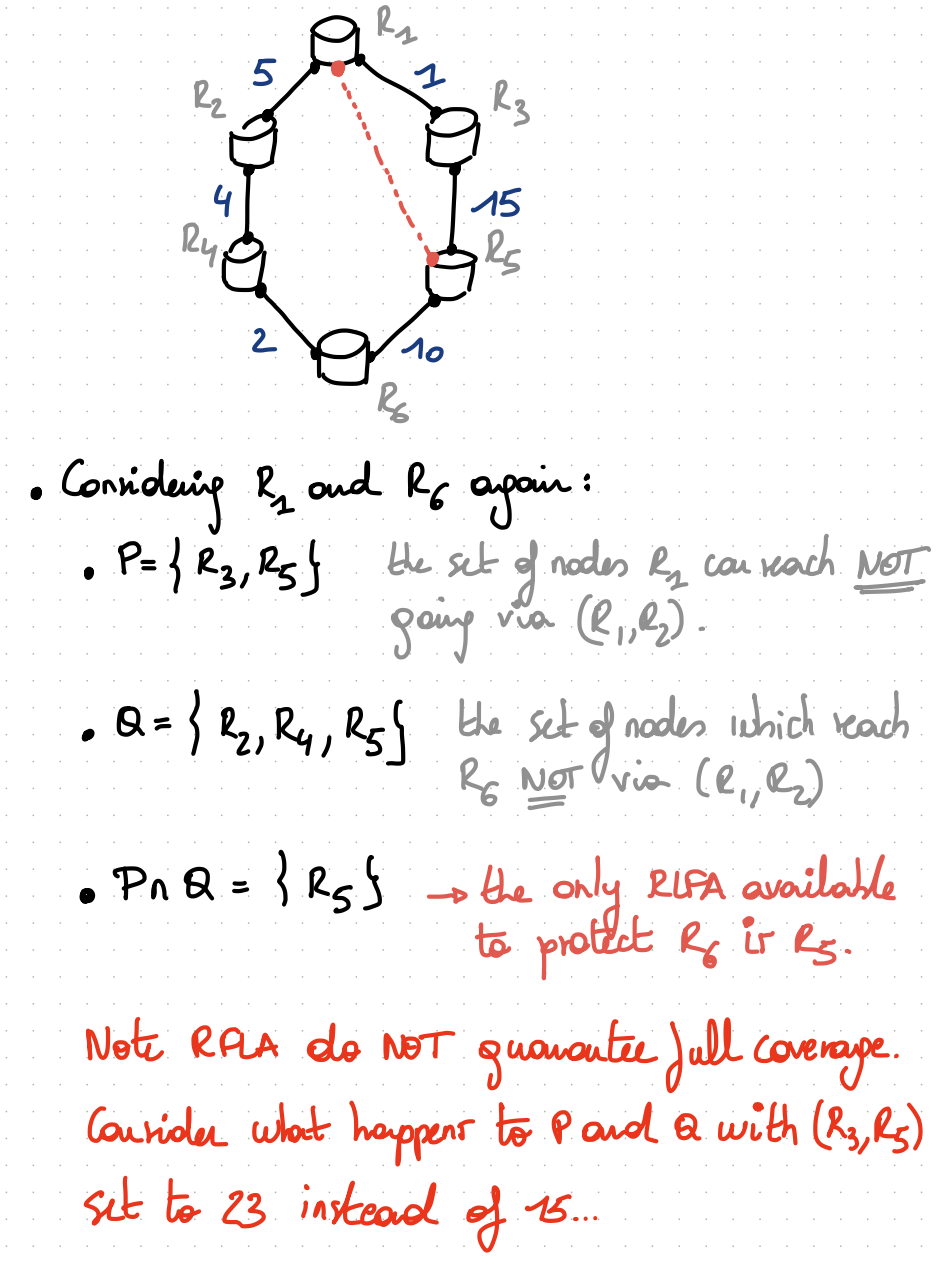 R1
5
1
R2
R3
4
15
R4
R5
2
10
R6
• Considering R1 and R6 again:
• P = { R3, R5 } the set of nodes R1 can reach NOT
going via (R1, R2).
• Q = { R2, R4, R5 } the set of nodes which reach
R6 NOT via (R1, R2)
• P ∩ Q = { R5 } → the only RLFA available
to protect R6 is R5.
Note RPLA do NOT guarantee full coverage.
Consider what happens to P and Q with (R3, R5)
set to 23 instead of 15...